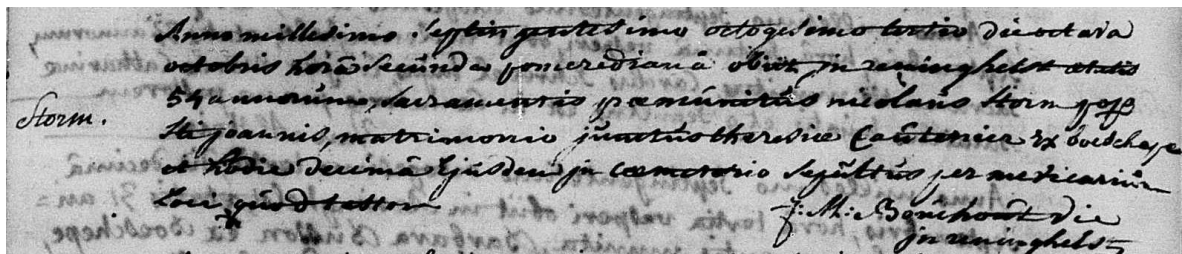 Anno millesimo septingentesimo octogesimo tertio die octava
octobris horâ secunda pomerediana obiit in reninghelst ætatis
54 annorum, sacramentis præmunitus nicolaus Storm
Storm.
Sti joannis, matrimonio junctus theresiæ Cautenier ex boeschepe
et hodie decimâ Ejusdem in cœmeterio sepultus per me vicarium
Loci quod testor
J: M: Bouchout die
in reninghelst